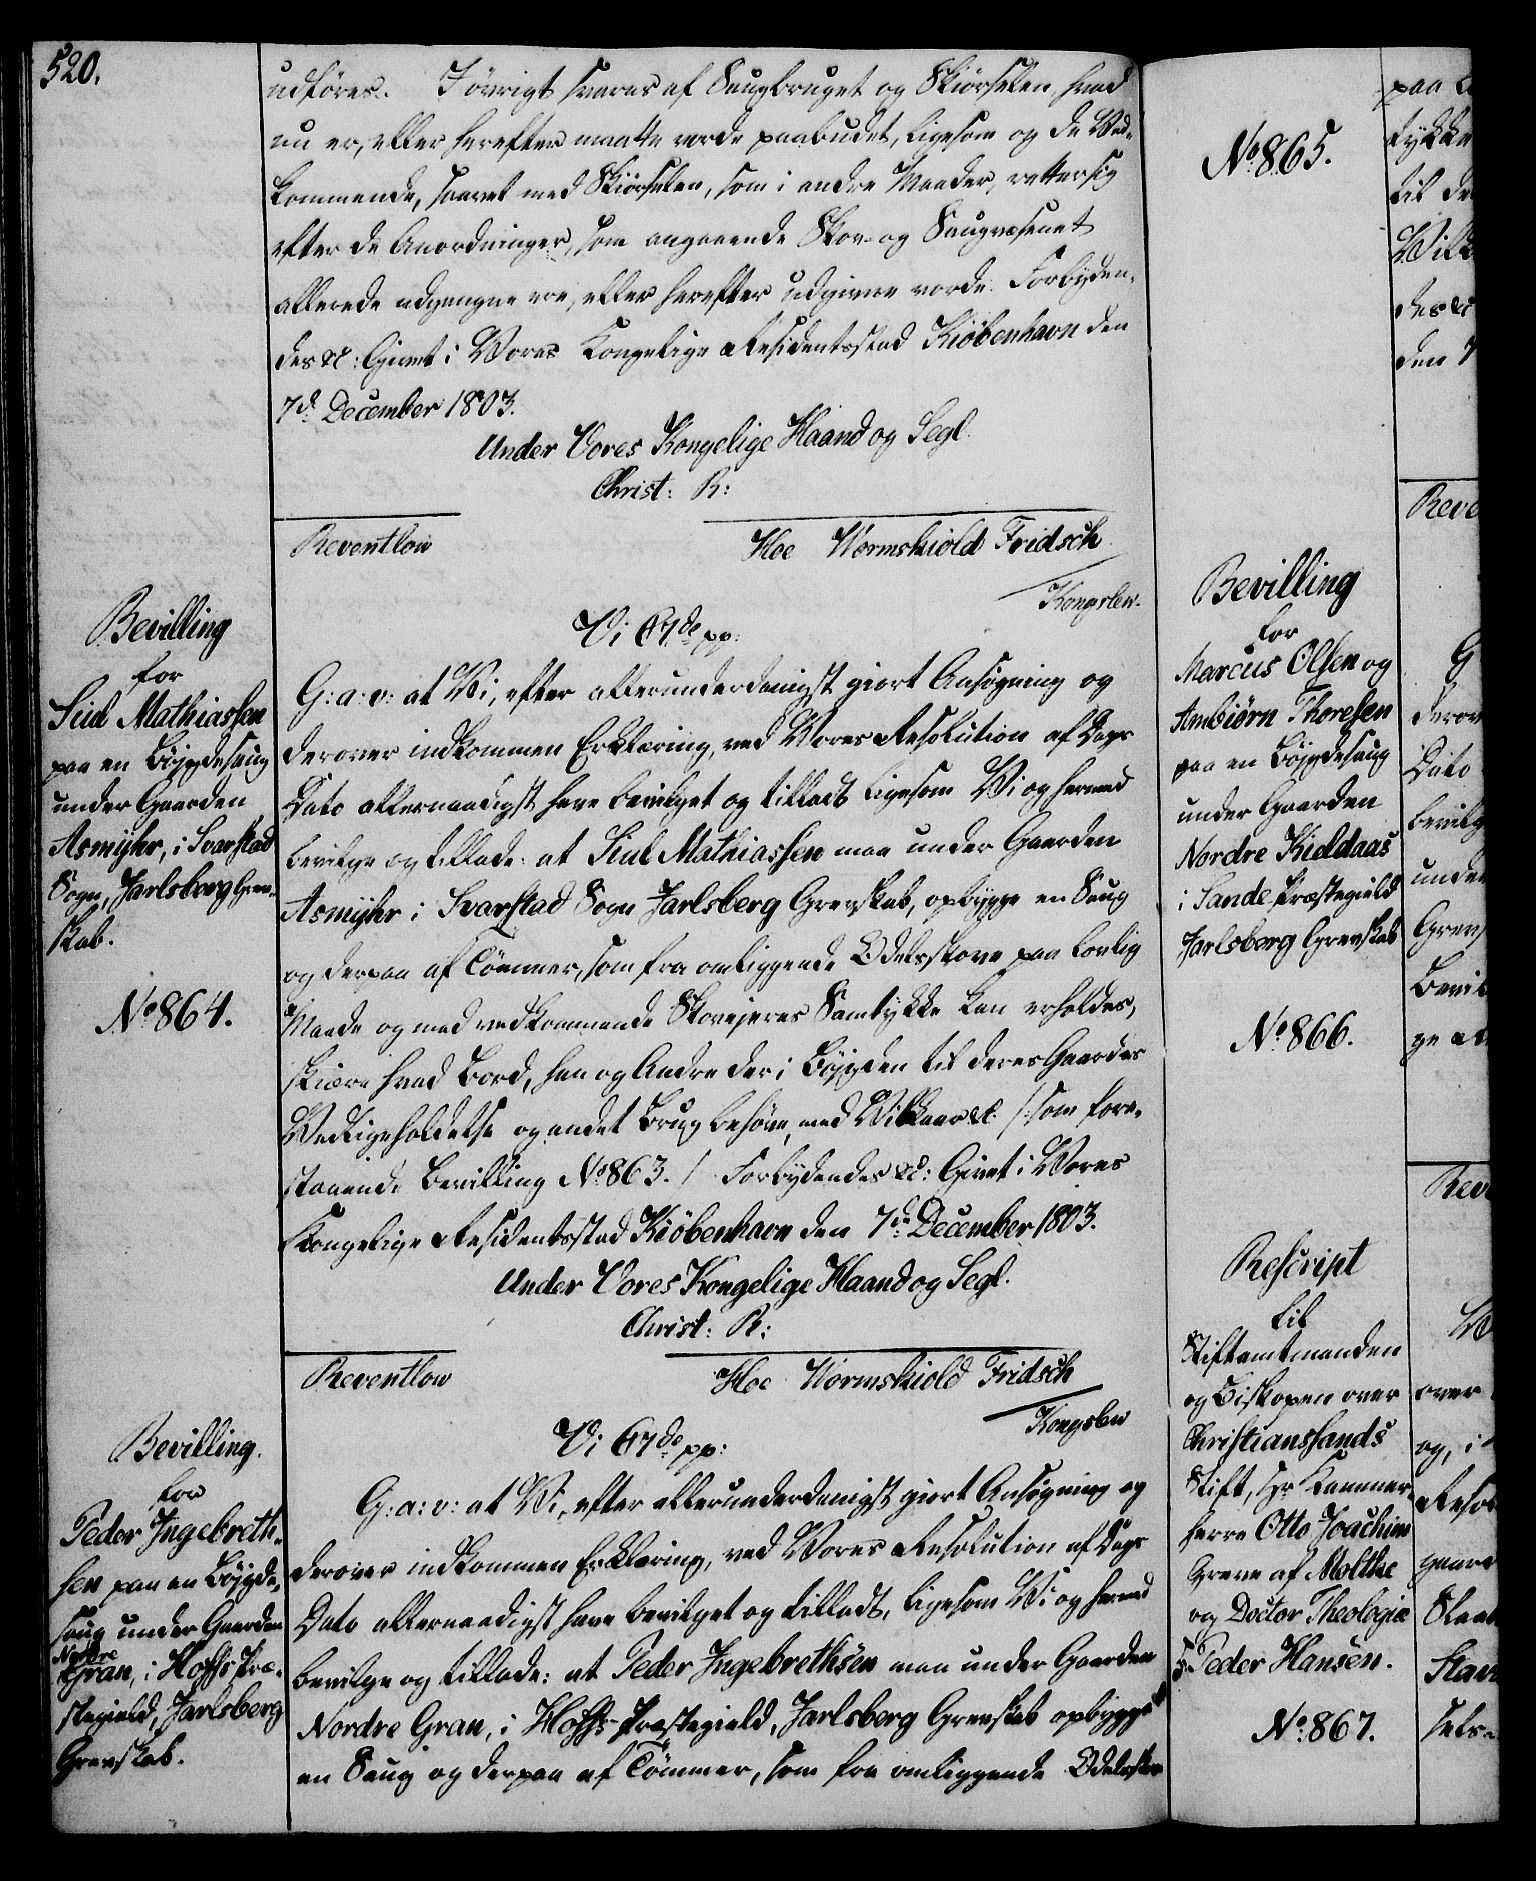 520.
udföres. I övrigt svares af Saugbruget og Skiörselen, hvad
nu er, eller herefter maatte vorde paabudet, ligesom og de Ved-
kommende, saavel med Skiörselen, som i andre Maader, rettersig
efter de Anordninger, som angaaende Skov- og Saugvæsenet
allerede udgangne ere, eller herefter udgivne vorde. Forbyden-
des &c: Givet i Vores Kongelige Residentsstad Kiöbenhavn den
7d. December 1803.
Under Vores Kongelige Haand og Segl.
Christ: R:
Reventlow
Hoe Wormskiold Fridsch
Kongslew.
Bevilling
for
Siul Mathiassen
paa en Böjgdesaug
under Gaarden
Asmyhr, i Svarstad
Sogn, Jarlsberg Grev-
skab.
No. 864.
Vi C 7de pp:
G: a: v: at Vi, efter allerunderdanigst giort Ansögning og
derover indkommen Erklæring, ved Vores Resolution af Dags
Dato allernaadigst have bevilget og tilladt ligesom Vi og hermed
bevilge og tillade: at Siul Mathiassen maa under Gaarden
Asmyhr i Svarstad Sogn Jarlsberg Grevskab, opbygge en Saug
og derpaa af Tömmer, som fra omliggende Odelsskove paa lovlig
Maade og med vedkommende Skovejeres Samtykke kan erholdes,
skiære hvad Bord, han og Andre der i Böjgden til deres Gaardes
Vedligeholdelse og andet Brug behöve, med Vilkaar &c. /: som fore-
staaende Bevilling No. 863. / Forbydendes &c: Givet i Vores
Kongelige Residentsstad Kiöbenhavn den 7de December 1803.
Under Vores Kongelige Haand og Segl.
Christ: R:
Reventlow
Hoe Wormskiold Fridsch
Kongslew
Bevilling.
for
Peder Ingebreth-
sen paa en Böjgde-
saug under Gaarden
Nordre
Gran, i Hoffs Præ-
stegield, Jarlsberg
Grevskab.
Vi C 7de pp:
G: a: v: at Vi, efter allerunderdanigst giort Ansögning og
derover indkommen Erklæring, ved Vores Resolution af Dags
Dato allernaadigst have bevilget og tilladt, ligesom Vi og hermed
bevilge og tillade: at Peder Ingebrethsen maa under Gaarden
Nordre Gran, i Hoffs Præstegield, Jarlsberg Grevskab opbygge
en Saug og derpaa af Tömmer, som fra omliggende Odelsskove
No. 865.
Bevilling
for
Marcus Olsen og
Ambiörn Thoresen
paa en Böjgdesaug
under Gaarden
Nordre Kiddaas
i Sande Præstegield
Jarlsberg Grevskab
No. 866.
Rescript
til
Stiftamtmanden
og Biskopen over
Christianssands
Stift, Hr. Kammer-
herre Otto Joachim
Greve af Moltke
og Doctor Theologiæ
Hr. Peder Hansen.
No. 867.
paa
tykke
til de
des &c
den 7
Reve
G
derov
Dato
bevilg
under
Grevs
Bevil
over
og, i